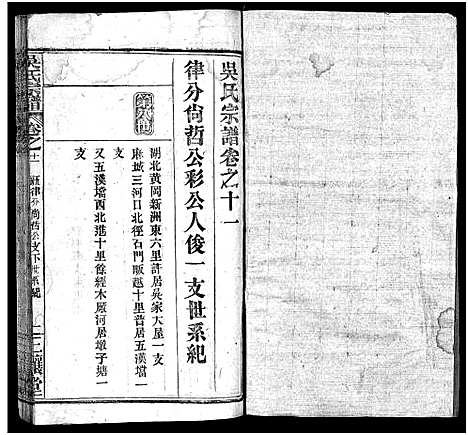 吳氏宗譜卷之十一
律分尙哲公彩公人俊一支世系紀
湖北黄岡新洲東六里許居吳家大屋一支
麻城三河口北徑石門畈越十里普居五漢壋一
支
又五漢壋西北進十里餘經木廠河居墩子塘一
支
吳氏宗譜
卷之十一
律分尙哲公支下世系紀
三讓堂